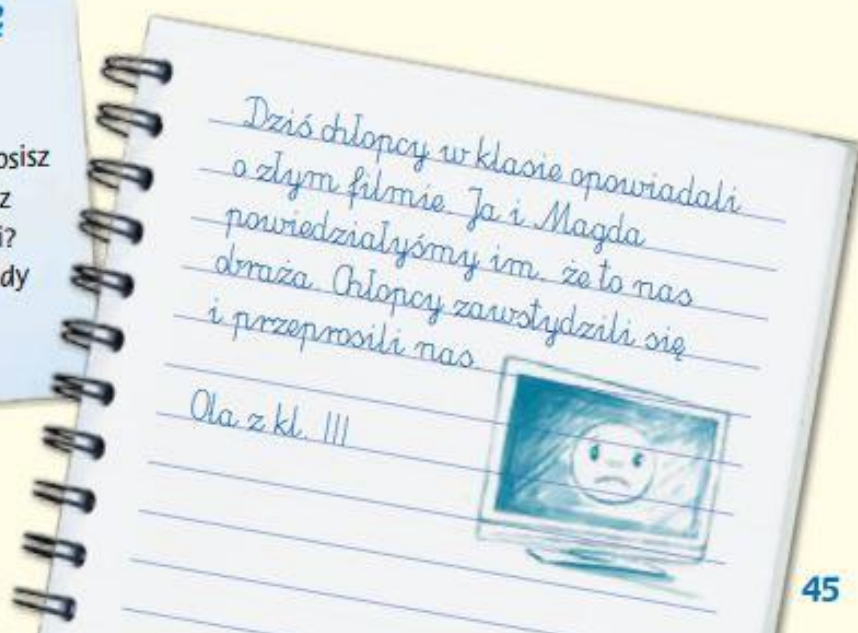 osisz
z
i?
dy
Dziś chłopcy w klasie opowiadali
o złym filmie. Ja i Magda
powiedziałyśmy im, że to nas
obraża. Chłopcy zawstydzili się
i przeprosili nas.
Ola z kl. III
45